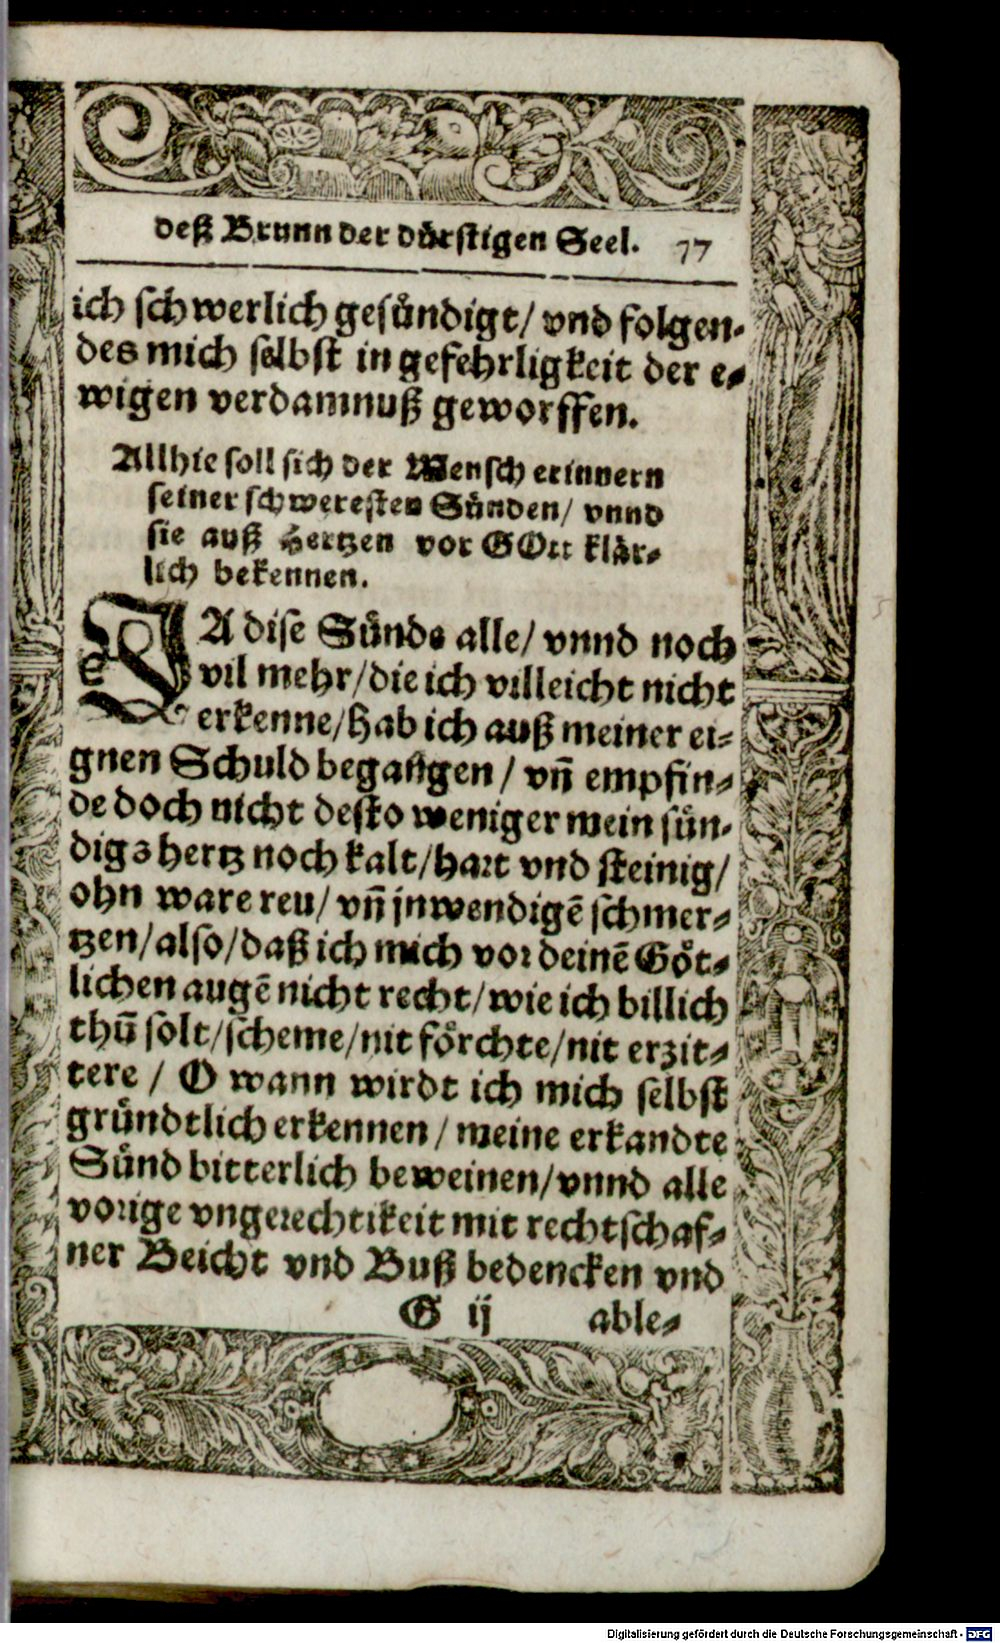 deß Brunn der dürstigen Seel. 77
ich schwerlich gesündigt/ vnd folgen-
des mich selbst in gefehrligkeit der e-
wigen verdamnuß geworffen.
Allhie soll sich der Mensch erinnern
seiner schweresten Sünden/ vnnd
sie auß Hertzen vor GOtt klär-
lich bekennen.
JA dise Sünde alle/ vnnd noch
vil mehr/ die ich villeicht nicht
erkenne/ hab ich auß meiner ei-
gnen Schuld begangen/ vñ empfin-
de doch nicht desto weniger mein sün-
digs hertz noch kalt/ hart vnd steinig/
ohn ware reu/ vñ jnwendigē schmer-
tzen/ also/ daß ich mich vor deinē Göt-
lichen augē nicht recht/ wie ich billich
thū solt/ scheme/ nit förchte/ nit erzit-
tere / O wann wirdt ich mich selbst
gründtlich erkennen / meine erkandte
Sünd bitterlich beweinen/ vnnd alle
vorige vngerechtikeit mit rechtschaf-
ner Beicht vnd Buß bedencken vnd
G ij able-
Digitalisierung gefördert durch die Deutsche Forschungsgemeinschaft - DFG